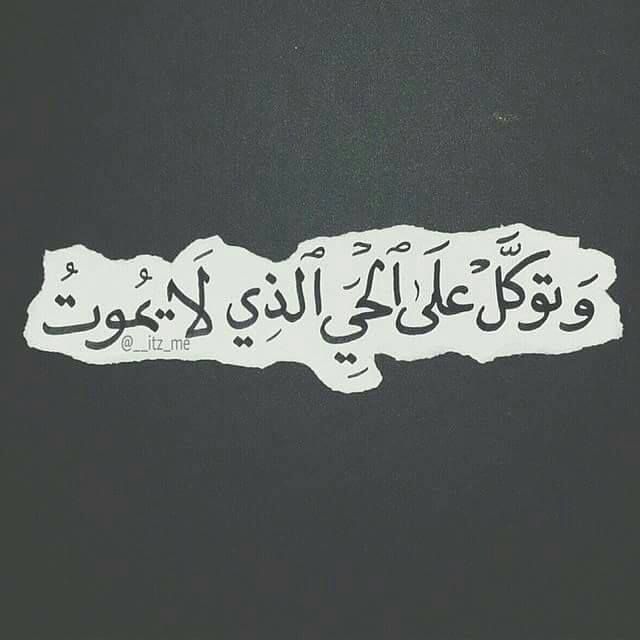 وَتَوَكَّلْ عَلَى ٱلْحَيِّ ٱلَّذِي لَا يَمُوتُ
@__itz_me